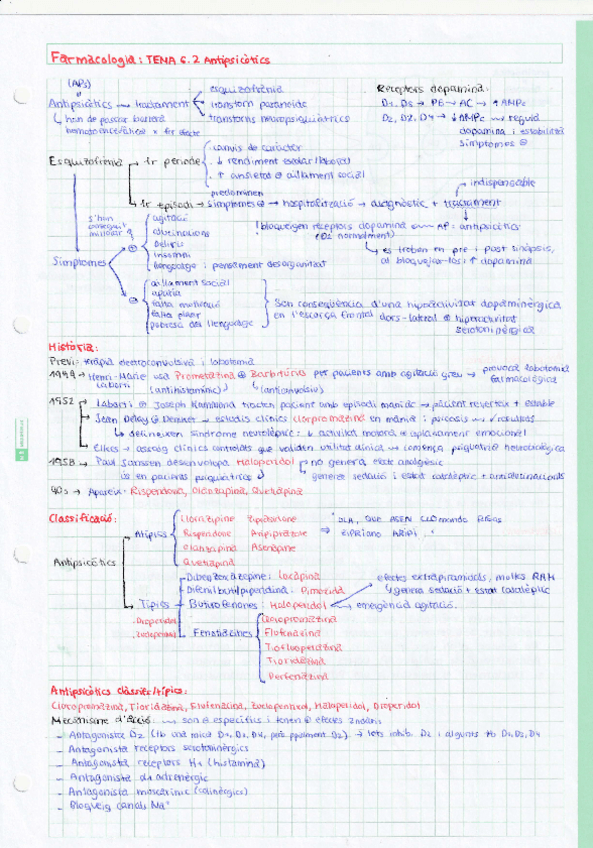 Farmacologia: TEMA 6.2 Antipsicòtics
(APs)
Antipsicòtics → tractament
esquizofrènia
transtorn paranoide
transtorns neuropsiquiàtrics
↳ han de passar barrera
hematoencefàlica x fer efecte
Receptors dopamina:
D1, D5 → → AC → ↑ AMPc
D2, D3, D4 → ↓ AMPc → regula
dopamina i estabilitza
símptomes ⊕
Esquizofrènia
1r període
canvis de caràcter
↓ rendiment escolar/laboral
↑ ansietat ⊕ aïllament social
predominen
1r episodi → símptomes ⊕ → hospitalització → diagnòstic + tractament
indispensable
s'han
aconseguit
millorar
Símptomes
⊕
agitació
al·lucinacions
Deliris
insomni
llenguatge i pensament desorganitzat
! bloquegen receptors dopamina AP: antipsicòtics
(D2 normalment)
↳ es troben en pre i post sinàpsis,
al bloquejar-los: ↑ dopamina
⊖
aïllament social
apatia
falta motivació
falta plaer
pobresa del llenguatge
Són conseqüència d'una hipoactivitat dopaminèrgica
en l'escorça frontal dors-lateral ⊕ hiperactivitat
serotoninèrgica
Història:
Previ: teràpia electroconvulsiva i lobotomia
Henri-Marie usa Prometazina ⊕ Barbitúrics per pacients amb agitació greu → provocar lobotomia
Laborit (antihistamínic) (anticonvulsiu) farmacològica
1952
Laborit ⊕ Joseph Hammond tracten pacient amb episodi maníac → pacient reverteix + estable
Jean Delay ⊕ Deniker → estudis clínics clorpromazina en mania i psicosis → ✓ resultats
↳ defineixen síndrome neurolèptic: ↓ activitat motora ⊕ aplanament emocional
Elkes → assaig clínics controlats que validen utilitat clínica → comença psiquiatria neurobiològica
1958 → Paul Janssen desenvolupa Haloperidol
no genera efecte analgèsic
ús en pacients psiquiàtrics
genera sedació i estat catalèptic + antial·lucinacions
90s → Apareix: Risperidona, Olanzapina, Quetiapina
Classificació:
Antipsicòtics
Atípics
Clozapine Ziprasidone
Risperidone Aripiprazole
Olanzapina Asenapine
Quetiapina
⇒ "OLA, QUE ASEN CLOmando RISas
ZIPRIano ARIPI"
Típics
Droperidol
Zuclopentixol
Dibenzoxazepine: Loxapina
Difenilbutilpiperidina: Pimozida
Butirofenones: Haloperidol
efectes extrapiramidals, moltes RAM
↳ genera sedació + estat catalèptic
emergència agitació.
Fenotiazines
Clorpromazina
Flufenazina
Trifluoperazina
Tioridazina
Perfenazina
Antipsicòtics clàssics/típics:
Clorpromazina, Tioridazina, Flufenazina, Zuclopentixol, Haloperidol, Droperidol
Mecanisme d'acció: són específics i tenen efectes
- Antagonista D2 (tb una mica D1, D3, D4, però ppalment D2) → tots inhib. D2 i alguns tb D1, D3, D4
- Antagonista receptors serotoninèrgics
- Antagonista receptors H1 (histamina)
- Antagonista α1 adrenèrgic
- Antagonista muscarínic (colinèrgics)
- Bloqueig canals Na⁺